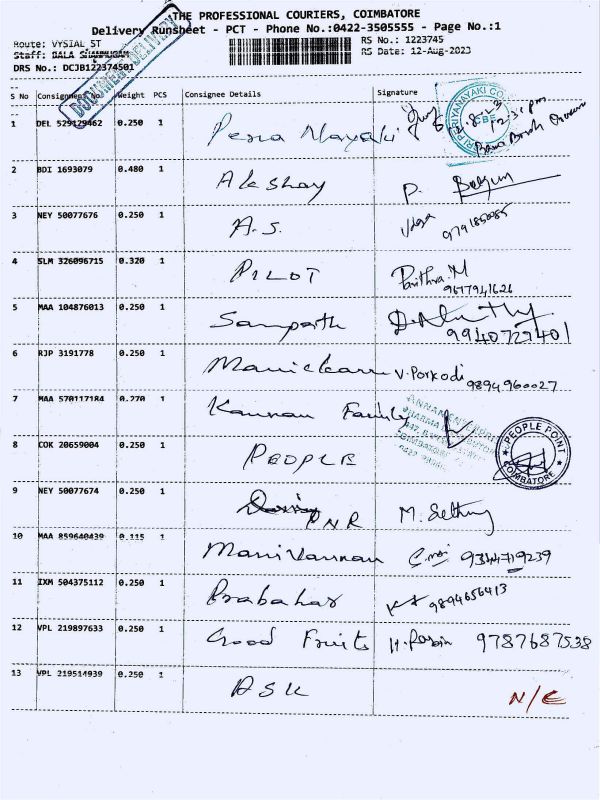 THE PROFESSIONAL COURIERS, COIMBATORE
Delivery Runsheet - PCT - Phone No.:0422-3505555 - Page No.:1
Route: VYSIAL ST
RS No.: 1223745
Staff: BALA SHANMUGAM
RS Date: 12-Aug-2023
DRS No.: DCJB122374501
DOCUMENT DELIVERY
S No Consignment No Weight PCS Consignee Details Signature
1 DEL 529129462 0.250 1 Peria Nayaki 12-8-23
12:31 pm
2 BDI 1693079 0.480 1 Akshay P.
3 NEY 50077676 0.250 1 A.S.
4 SLM 326096715 0.320 1 PILOT Pavithra.M
9617941626
5 MAA 104876013 0.250 1 Sampath
9940727401
6 RJP 3191778 0.250 1 Manickam V. Porkodi 9894960027
7 MAA 570117184 0.270 1 Kannan Family
PEOPLE POINT
COIMBATORE
8 COK 20659004 0.250 1 PEOPLE
9 NEY 50077674 0.250 1 PNR M. Sethu
10 MAA 859640439 0.115 1 Manivannan 9344719239
11 IXM 504375112 0.250 1 Prabahar 9894656413
12 VPL 219897633 0.250 1 Good Fruits 9787687538
13 VPL 219514939 0.250 1 ASK N/C